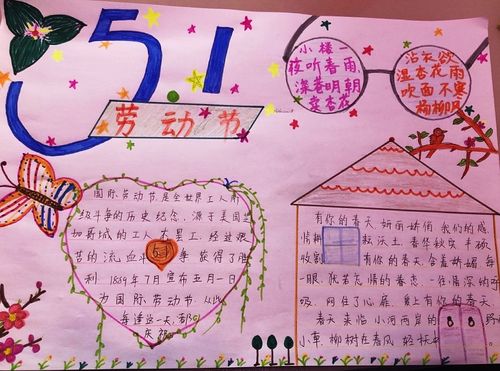 5.1
劳动节
小楼一
夜听春雨,
深巷明朝
卖杏花
沾衣欲
湿杏花雨
吹面不寒
杨柳风
国际劳动节是全世界工人阶
级斗争的历史纪念,源于美国芝
加哥城的工人大罢工,经过艰
苦的流血斗争 获得了胜
利。1889年7月宣布五月一日
为国际劳动节。从此
每逢这一天,都
庆祝
5.1
有你的春天,妍雨娇俏 我们的感
情 耘沃土,春华秋实 丰硕
收割 有你的春天,含羞娇媚 每
一眼,
吸,网住了心扉, 有你的春天
春天来临 小河两岸的 野
小草,柳树在春风 轻抚